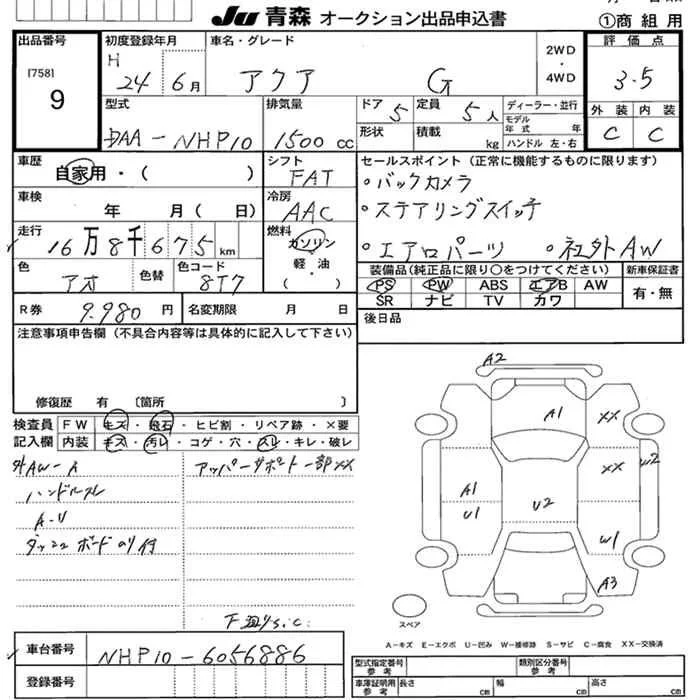 JU 青森 オークション出品申込書
①商 組 用
出品番号
[758]
9
初度登録年月
H 24 6月
車名・グレード
アクア G
2WD
・
4WD
評価点
3.5
外装 内装
C C
型式
DAA-NHP10
排気量
1500 cc
ドア 5
定員 5人
形状
積載 kg
ディーラー・並行
モデル年式 年
ハンドル 左・右
車歴
自家用・( )
シフト
FAT
車検
年 月( 日)
冷房
AAC
走行
16万8千675km
燃料
ガソリン
・
軽・油
( )
色
アオ
色替
色コード
8T7
R券 9.980円
名変期限 月 日
セールスポイント(正常に機能するものに限ります)
・バックカメラ
・ステアリングスイッチ
・エアロパーツ ・社外AW
装備品(純正品に限り○をつけてください)
新車保証書
PS PW ABS エアB AW
有・無
SR ナビ TV カワ
後日品
注意事項申告欄(不具合内容等は具体的に記入して下さい)
修復歴 有 〔箇所 〕
検査員 FW キズ・飛石・ヒビ割・リペア跡・×要
記入欄 内装 キズ・汚レ・コゲ・穴・スレ・キレ・破レ
外AW-A
アッパーサポート一部XX
ハンドルスレ
A-U
ダッシュボードのり付
下廻りS.C.
A2
A1
XX
XX
U2
A1
U1
U2
W1
A3
スペア
A-キズ E-エクボ U-凹み W-補修跡 S-サビ C-腐食 XX-交換済
車台番号
NHP10-6056886
登録番号
型式指定番号 参考
類別区分番号 参考
車庫証明用 参考
長さ cm
幅 cm
高さ cm